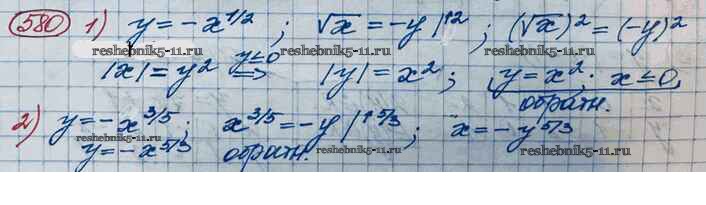 580 1) y = -x^{1/2} ; √x = -y |↑2 ; (√x)^2 = (-y)^2
www.reshebnik5-11.ru www.reshebnik5-11.ru
|x| = y^2 y≤0 ⟹ |y| = x^2 ; y = x^2 ; x ≤ 0,
обратн.
2) y = -x^{3/5} ; x^{3/5} = -y |↑5/3 ; x = -y^{5/3}
y = -x^{5/3} обратн.
reshebnik5-11.ru www.reshebnik5-11.ru reshebnik5-11.ru